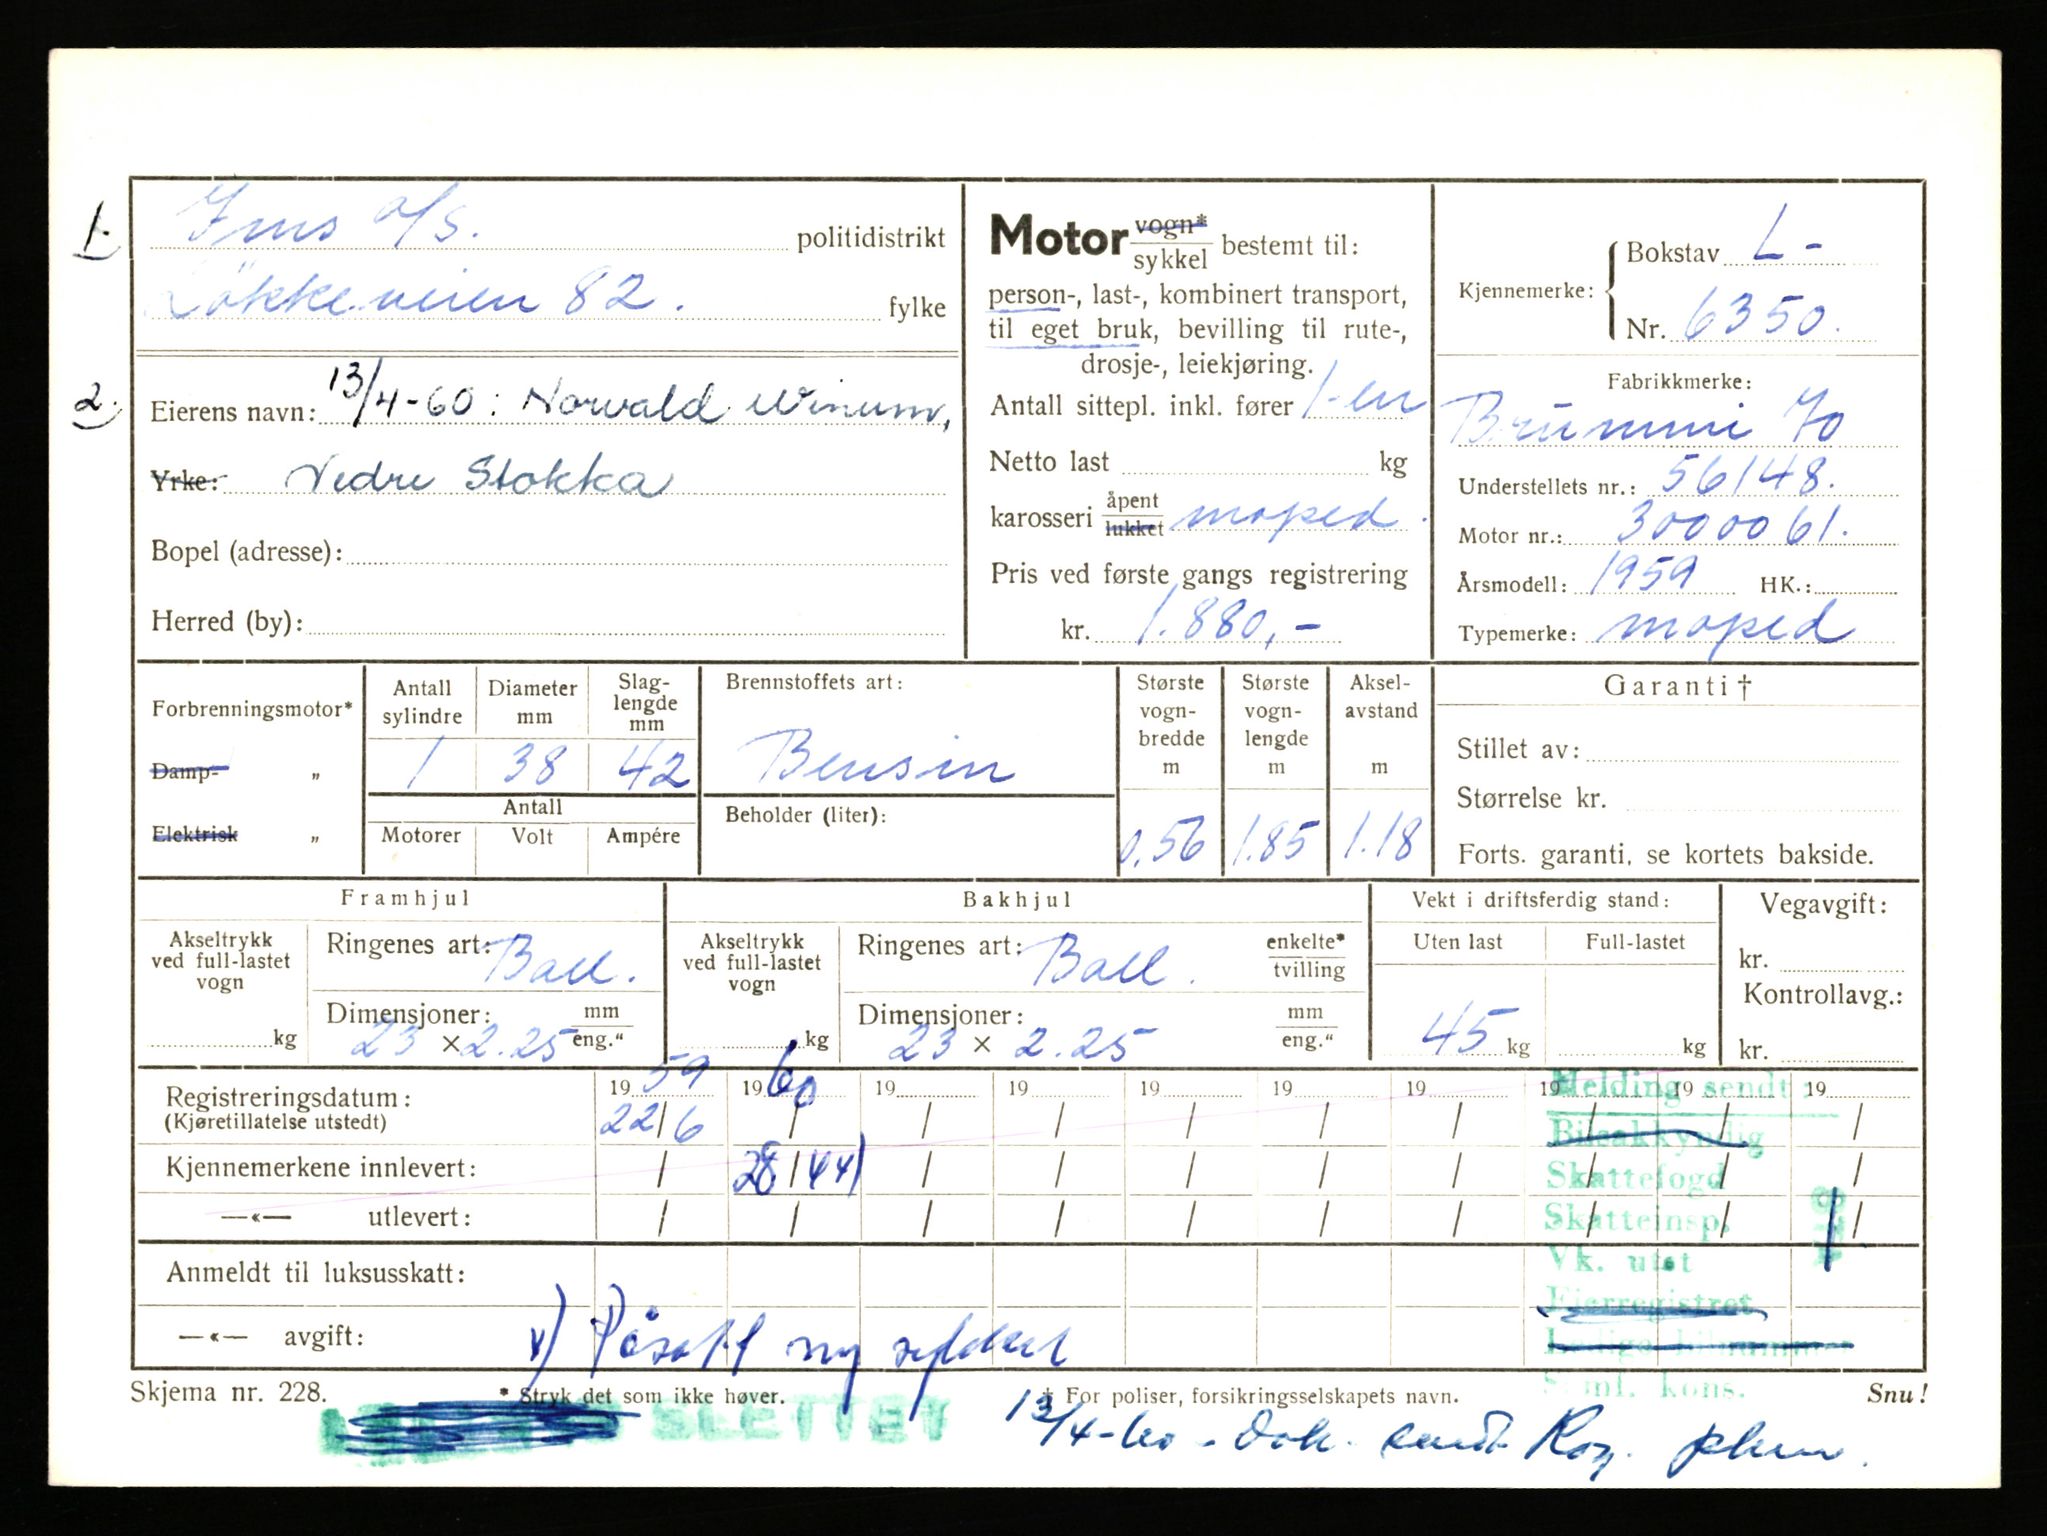 1. Ims a/s. politidistrikt
Løkkeveien 82. fylke
2. Eierens navn: 13/4-60: Norvald
Yrke: Nedre Stokka
Bopel (adresse):
Herred (by):
Motor vogn*/sykkel bestemt til:
person-, last-, kombinert transport,
til eget bruk, bevilling til rute-,
drosje-, leiekjøring.
Antall sittepl. inkl. fører 1-en
Netto last kg
karosseri åpent/lukket moped.
Pris ved første gangs registrering
kr. 1.880,-
Kjennemerke: Bokstav L-
Nr. 6350.
Fabrikkmerke:
Brummi 70
Understellets nr.: 56148.
Motor nr.: 3000061.
Årsmodell: 1959 HK.:
Typemerke: moped
Forbrenningsmotor*
Damp- „
Elektrisk „
Antall sylindre 1
Diameter mm 38
Slag-lengde mm 42
Antall
Motorer Volt Ampére
Brennstoffets art:
Bensin
Beholder (liter):
Største vogn-bredde m 0.56
Største vogn-lengde m 1.85
Aksel-avstand m 1.18
Garanti †
Stillet av:
Størrelse kr.
Forts. garanti, se kortets bakside.
Framhjul
Akseltrykk ved full-lastet vogn kg
Ringenes art: Ball.
Dimensjoner: mm/eng."
23 × 2.25
Bakhjul
Akseltrykk ved full-lastet vogn kg
Ringenes art: Ball. enkelte*/tvilling
Dimensjoner: mm/eng."
23 × 2.25
Vekt i driftsferdig stand:
Uten last Full-lastet
45 kg kg
Vegavgift:
kr.
Kontrollavg.:
kr.
Registreringsdatum: 19 59 19 60 19 19 19 19 19 19 19 19
(Kjøretillatelse utstedt) 22/6 / / / / / / / / /
Kjennemerkene innlevert: / 28/4 / / / / / / / /
—«— utlevert: / / / / / / / / / /
Anmeldt til luksusskatt:
—«— avgift: Påsatt ny
Melding sendt:
Bilsakkyndig
Skattefogd
Skatteinsp.
Vk. utst
Eierregistret
Skjema nr. 228. * Stryk det som ikke høver. † For poliser, forsikringsselskapets navn. Snu!
SLETTET
13/4-60 - Dok. sendt Rog.